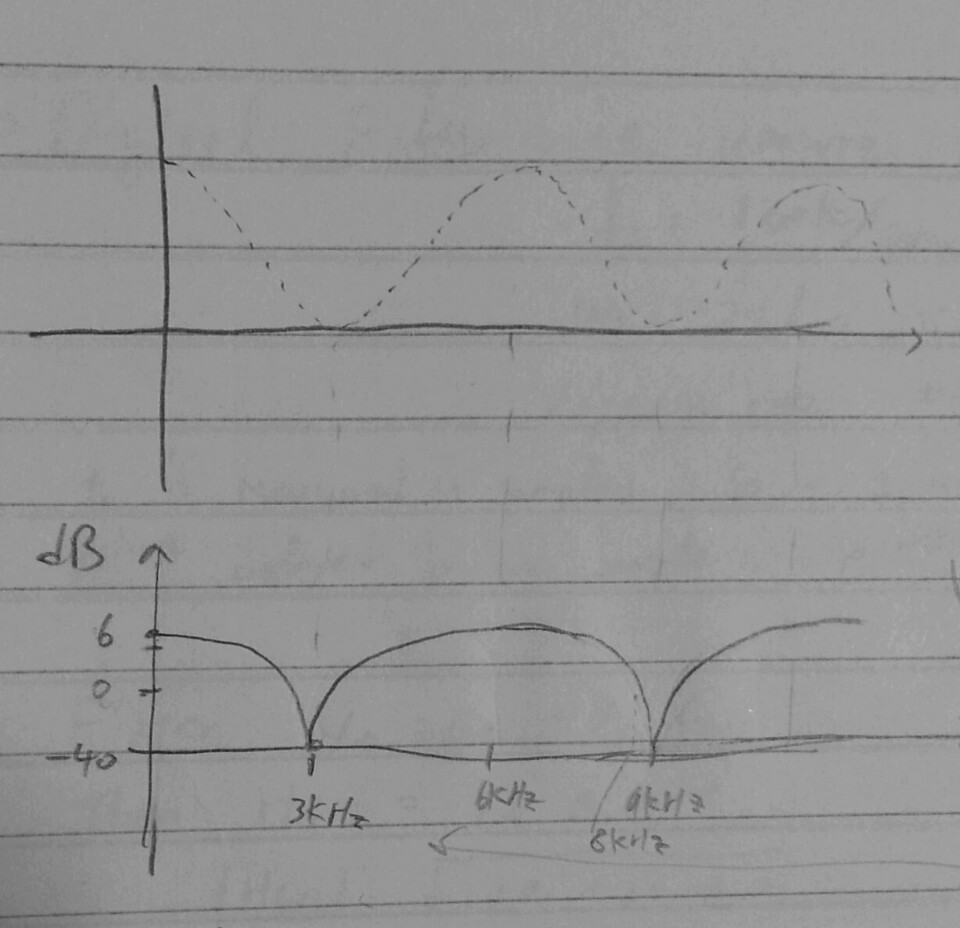 dB
6
0
-40
3kHz 6kHz 9kHz
8kHz